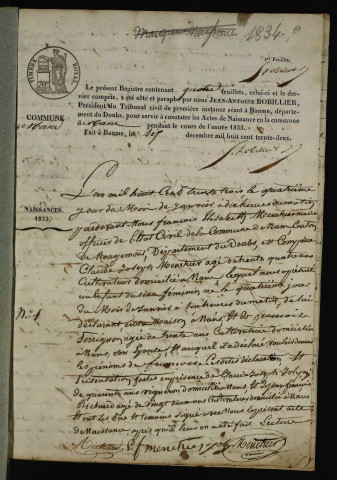 1834
1er Feuillet.
TIMBRE ROYAL
Le présent Registre contenant quatre feuillets, celui-ci et le dernier
compris, a été coté et paraphé par nous JEAN-ANTOINE BOBILLIER,
Président du Tribunal civil de première instance séant à Baume, département
du Doubs, pour servir à constater les Actes de Naissance en la commune
COMMUNE
de Nans pendant le cours de l'année 1833.
Fait à Baume, le décembre mil huit cent trente-deux.
NAISSANCES.
1833.
L'an mil huit Cent trente trois le quatrième
jour du Mois de Janvier à dix heures du matin
pardevant Nous françois Elisabeth
officier de l'état Civil de la Commune de Nans Canton
de Rougemont, Département du Doubs, est Comparu
Claude Joseph Menetrier agé de trente quatre ans
Cultivateur domicilié à Nans lequel nous a présenté
un Enfant du sexe féminin né le quatrième jour
du Mois de Janvier à six heures du matin de lui
déclarant en sa Maison à Nans et de françoise
agée de trente ans Cultivateur domiciliée
N° 1
à Nans, son Epouse et auquel il a déclaré vouloir donner
les prénoms de françoise. Lesdites déclaration et
présentation faites en présence de Claude Joseph
de quarante ans domicilié à Nans et Jean françois
Richard agé de Vingt ans Cultivateur domicilié à Nans
et ont les père et témoins signé avec Nous le présent acte
de Naissance après qu'il leur en a été fait Lecture
Richard menetrier Menetrier